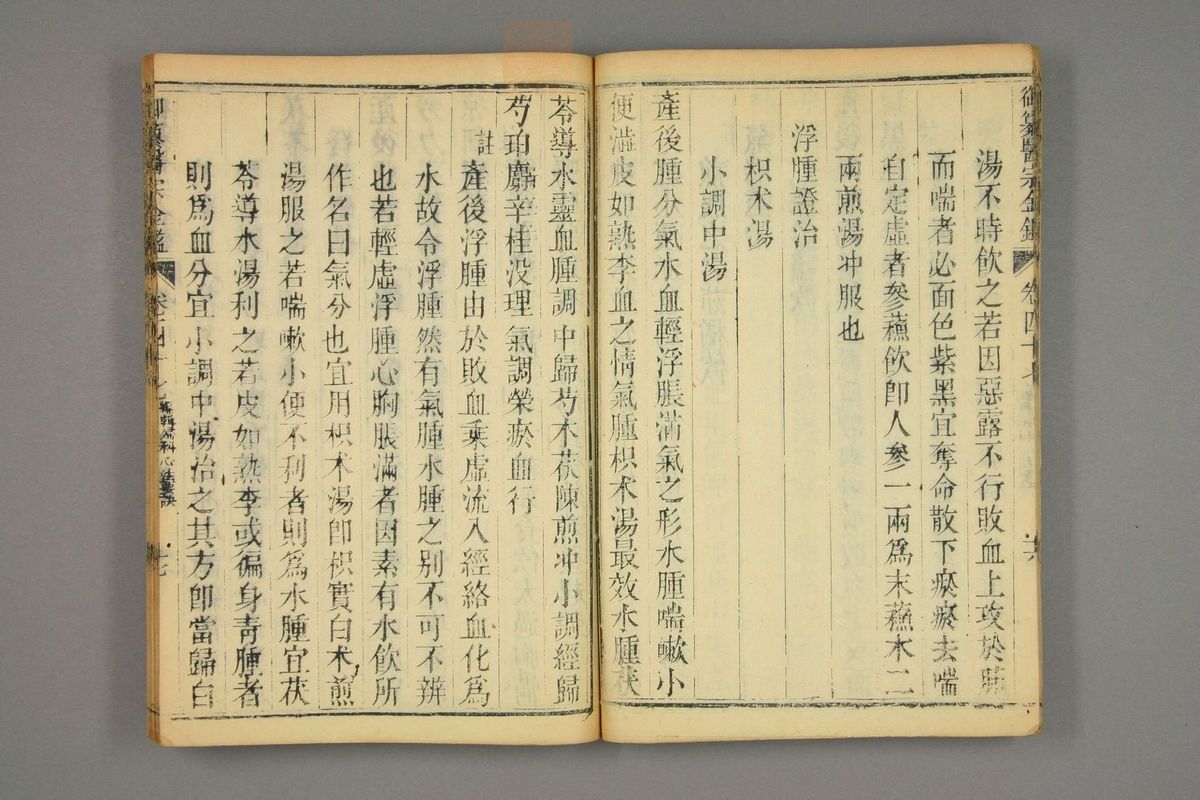 御纂醫宗金鑑 卷四十七
湯不時飲之若因惡露不行敗血上攻於肺
而喘者必面色紫黑宜奪命散下瘀瘀去喘
自定虛者參蘇飲卽人參一兩爲末蘇木二
兩煎湯冲服也
浮腫證治
枳朮湯
小調中湯
產後腫分氣水血輕浮脹滿氣之形水腫喘嗽小
便澁皮如熟李血之情氣腫枳朮湯最效水腫茯
苓導水靈血腫調中歸芍朮茯陳煎冲小調經歸
芍珀麝辛桂没理氣調榮瘀血行
註
產後浮腫由於敗血乘虛流入經絡血化爲
水故令浮腫然有氣腫水腫之别不可不辨
也若輕虛浮腫心胸脹滿者因素有水飲所
作名曰氣分也宜用枳朮湯卽枳實白朮煎
湯服之若喘嗽小便不利者則爲水腫宜茯
苓導水湯利之若皮如熟李或徧身青腫者
則爲血分宜小調中湯治之其方卽當歸白
御纂醫宗金鑑 卷四十七 編輯婦科心法要訣 十七